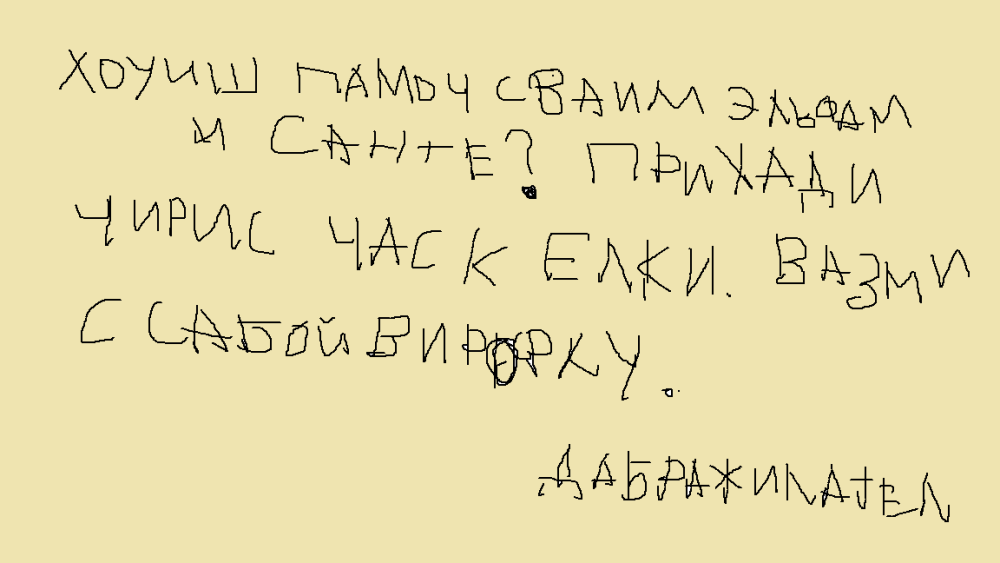 ХОЧИШ ПАМОЧ СВАИМ ЭЛЬФАМ
И САНТЕ? ПРИХАДИ
ЧИРИС ЧАС К ЕЛКИ. ВАЗМИ
С САБОЙ
ДАБРАЖИЛАТЕЛ